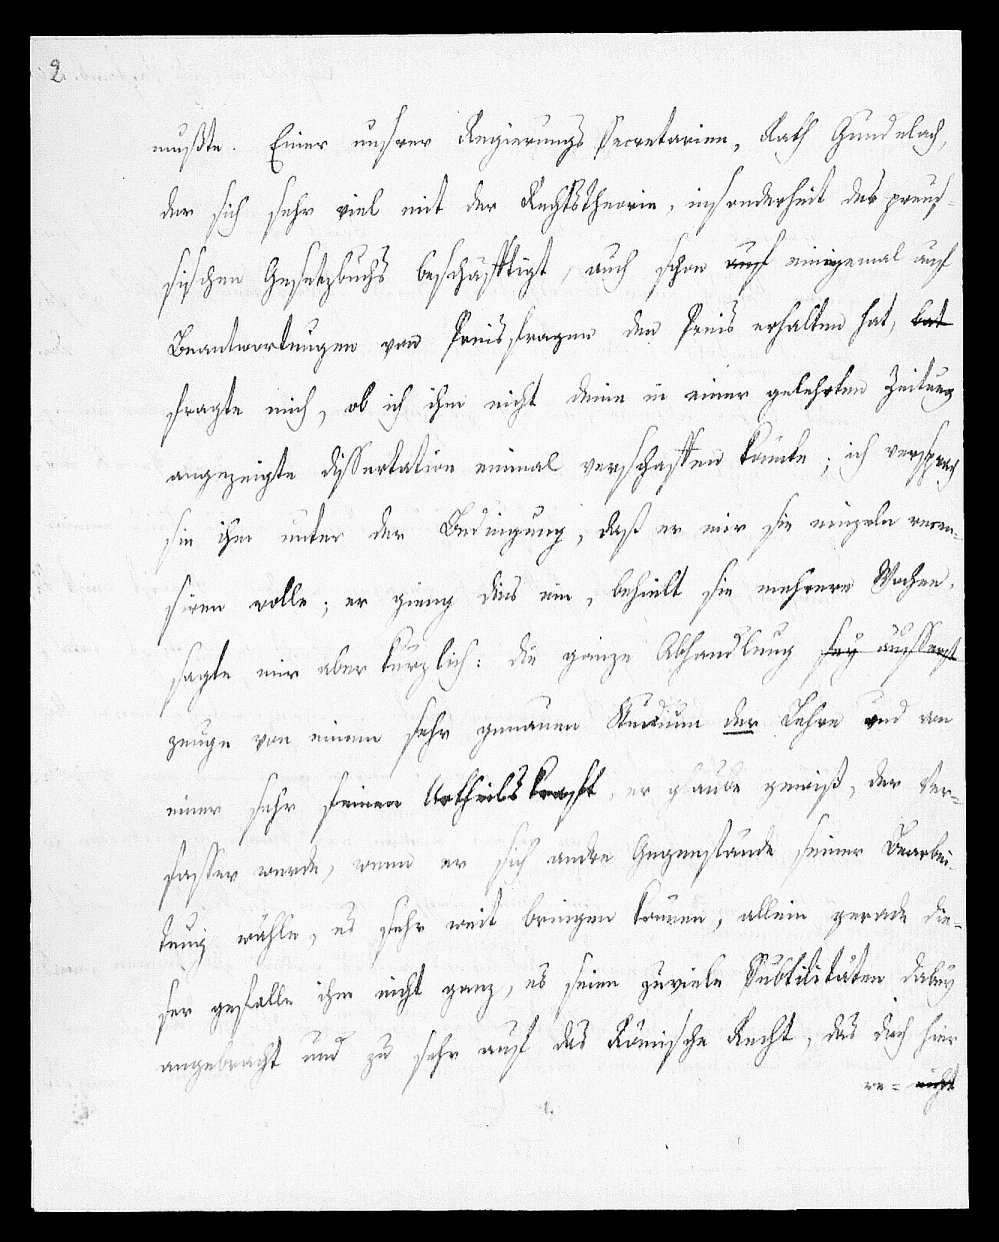 2
mußte. Einer unsrer Regierungs Secretarien, Rath Gundelach,
der sich sehr viel mit der Rechtstheorie, insonderheit des preus-
sischen Gesetzbuchs beschäfftigt, auch schon auf einigemal auf
Beantwortungen von Preisfragen den Preis erhalten hat, bat
fragte mich, ob ich ihm nicht deine in einer gelehrten Zeitung
angezeigte Dissertation einmal verschaffen könnte; ich versprach
sie ihm unter der Bedingung, daß er mir sie einzeln recen-
siren wolle; er gieng dies ein, behielt sie mehrere Wochen,
sagte mir aber kürzlich: die ganze Abhandlung sey äusserst
zeuge von einem sehr genauen Studium der Lehre und von
einer sehr feinen Urtheilskrafft, er glaube gewiß, der Ver-
fasser werde, wenn er sich andre Gegenstände seiner Bearbei-
tung wähle, es sehr weit bringen können, allein gerade die-
ser gefalle ihm nicht ganz, es seien zuviele Subtilitäten dabey
angebracht und zu sehr auf das Römische Recht, das doch hier
re- nicht